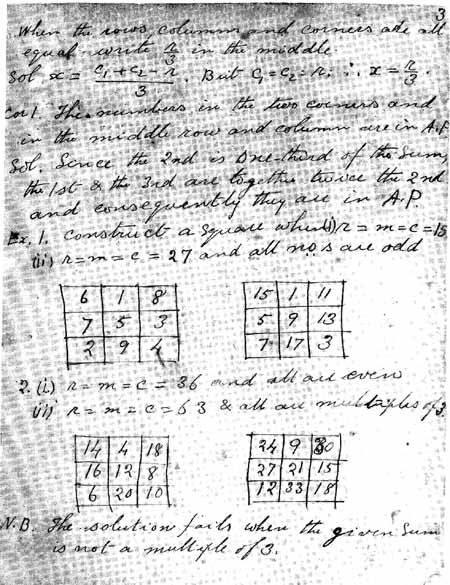 3
When the rows, columns and corners are all
equal write r/3 in the middle.
Sol x = (c₁ + c₂ - r)/3. But c₁ = c₂ = r; ∴ x = r/3.
Cor 1. The numbers in the two corners and
in the middle row and column are in A.P.
Sol. Since the 2nd is one-third of the sum,
the 1st & the 3rd are together twice the 2nd
and consequently they are in A.P.
Ex. 1. Construct a square when (i) r = m = c = 15
(ii) r = m = c = 27 and all nos are odd
6 1 8 15 1 11
7 5 3 5 9 13
2 9 4 7 17 3
2. (i) r = m = c = 36 and all are even
(ii) r = m = c = 63 & all are multiples of 3.
14 4 18 24 9 30
16 12 8 27 21 15
6 20 10 12 33 18
N.B. The solution fails when the given sum
is not a multiple of 3.